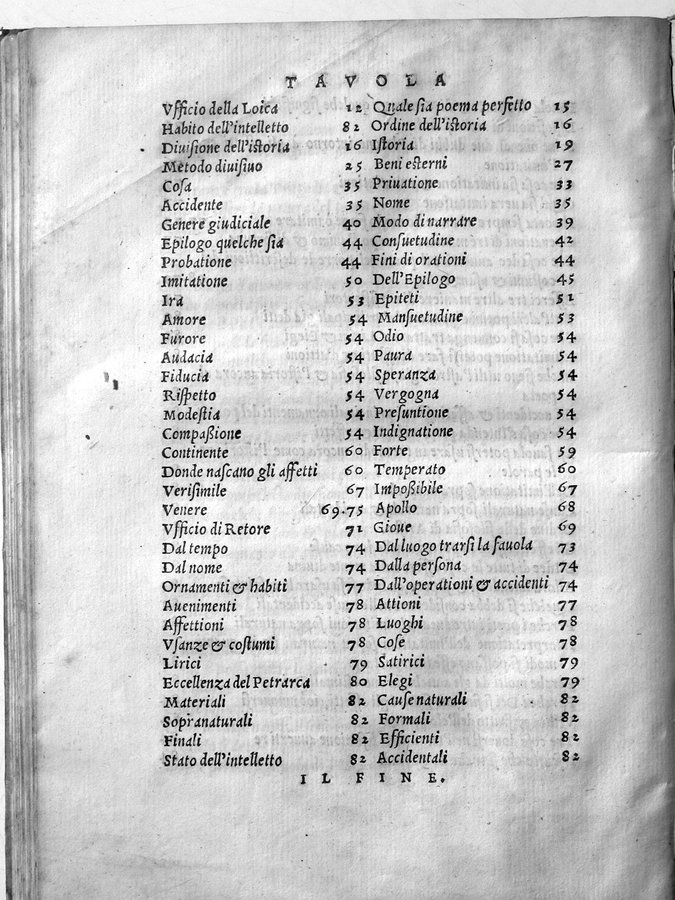 TAVOLA
Vfficio della Loica 12 Quale ſia poema perfetto 15
Habito dell'intelletto 82 Ordine dell'iſtoria 16
Diuiſione dell'iſtoria 16 Iſtoria 19
Metodo diuiſiuo 25 Beni eſterni 27
Coſa 35 Priuatione 33
Accidente 35 Nome 35
Genere giudiciale 40 Modo di narrare 39
Epilogo quelche ſia 44 Conſuetudine 42
Probatione 44 Fini di orationi 44
Imitatione 50 Dell'Epilogo 45
Ira 53 Epiteti 51
Amore 54 Manſuetudine 53
Furore 54 Odio 54
Audacia 54 Paura 54
Fiducia 54 Speranza 54
Riſpetto 54 Vergogna 54
Modeſtia 54 Preſuntione 54
Compaßione 54 Indignatione 54
Continente 60 Forte 59
Donde naſcano gli affetti 60 Temperato 60
Veriſimile 67 Impoßibile 67
Venere 69.75 Apollo 68
Vfficio di Retore 71 Gioue 69
Dal tempo 74 Dal luogo trarſi la fauola 73
Dal nome 74 Dalla perſona 74
Ornamenti & habiti 77 Dall'operationi & accidenti 74
Auenimenti 78 Attioni 77
Affettioni 78 Luoghi 78
Vſanze & coſtumi 78 Coſe 78
Lirici 79 Satirici 79
Eccellenza del Petrarca 80 Elegi 79
Materiali 82 Cauſe naturali 82
Sopranaturali 82 Formali 82
Finali 82 Efficienti 82
Stato dell'intelletto 82 Accidentali 82
IL FINE.